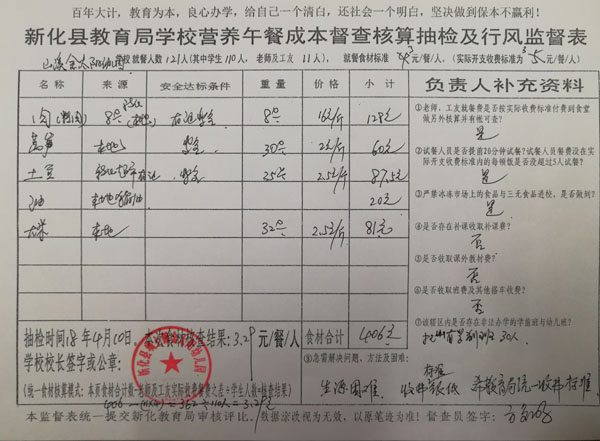 百年大计，教育为本，良心办学，给自己一个清白，还社会一个明白，坚决做到保本不赢利！
新化县教育局学校营养午餐成本督查核算抽检及行风监督表
就餐人数121人(其中学生110人，老师及工友11人)，就餐食材标准 元/餐/人，(实际开支收费标准为 元/餐/人)
名称 来源 安全达标条件 重量 价格 小计 负责人补充资料
肉(精肉) 8 128元
莴笋 本地 30 2元/斤 60元
土豆 25 2.5元/斤 87.5元
油 20元
大米 本地 32 2.5元/斤 81元
①老师、工友就餐费是否按实际收费标准付到食堂做另外核算并有帐可查？
是
②试餐人员是否提前20分钟试餐?试餐人员餐费没在实际开支收费标准内的每顿饭是否没超过5人试餐?
是
③严禁冰冻市场上的食品与三无食品进校，是否做到？
是
④是否存在补课收取补课费？
否
⑤是否收取课外教材费？
否
⑥是否收取班费及其他搭车收费？
否
⑦该辖区内是否存在非法办学的学前班与幼儿班？
30人
抽检时间18年4月10日，本次食材核查结果：3.29元/餐/人 食材合计 406元
学校校长签字或公章：
(统一食材核算模式：本页食材合计数—老师及工友实际就餐餐费之差÷学生人数=核查结果)
⑧急需解决问题、方法及困难：
生源困难 收费标准很低 希教育局统一收费标准
本监督表统一提交新化教育局审核评比，数据涂改视为无效，以原笔迹为准！督查员签字：